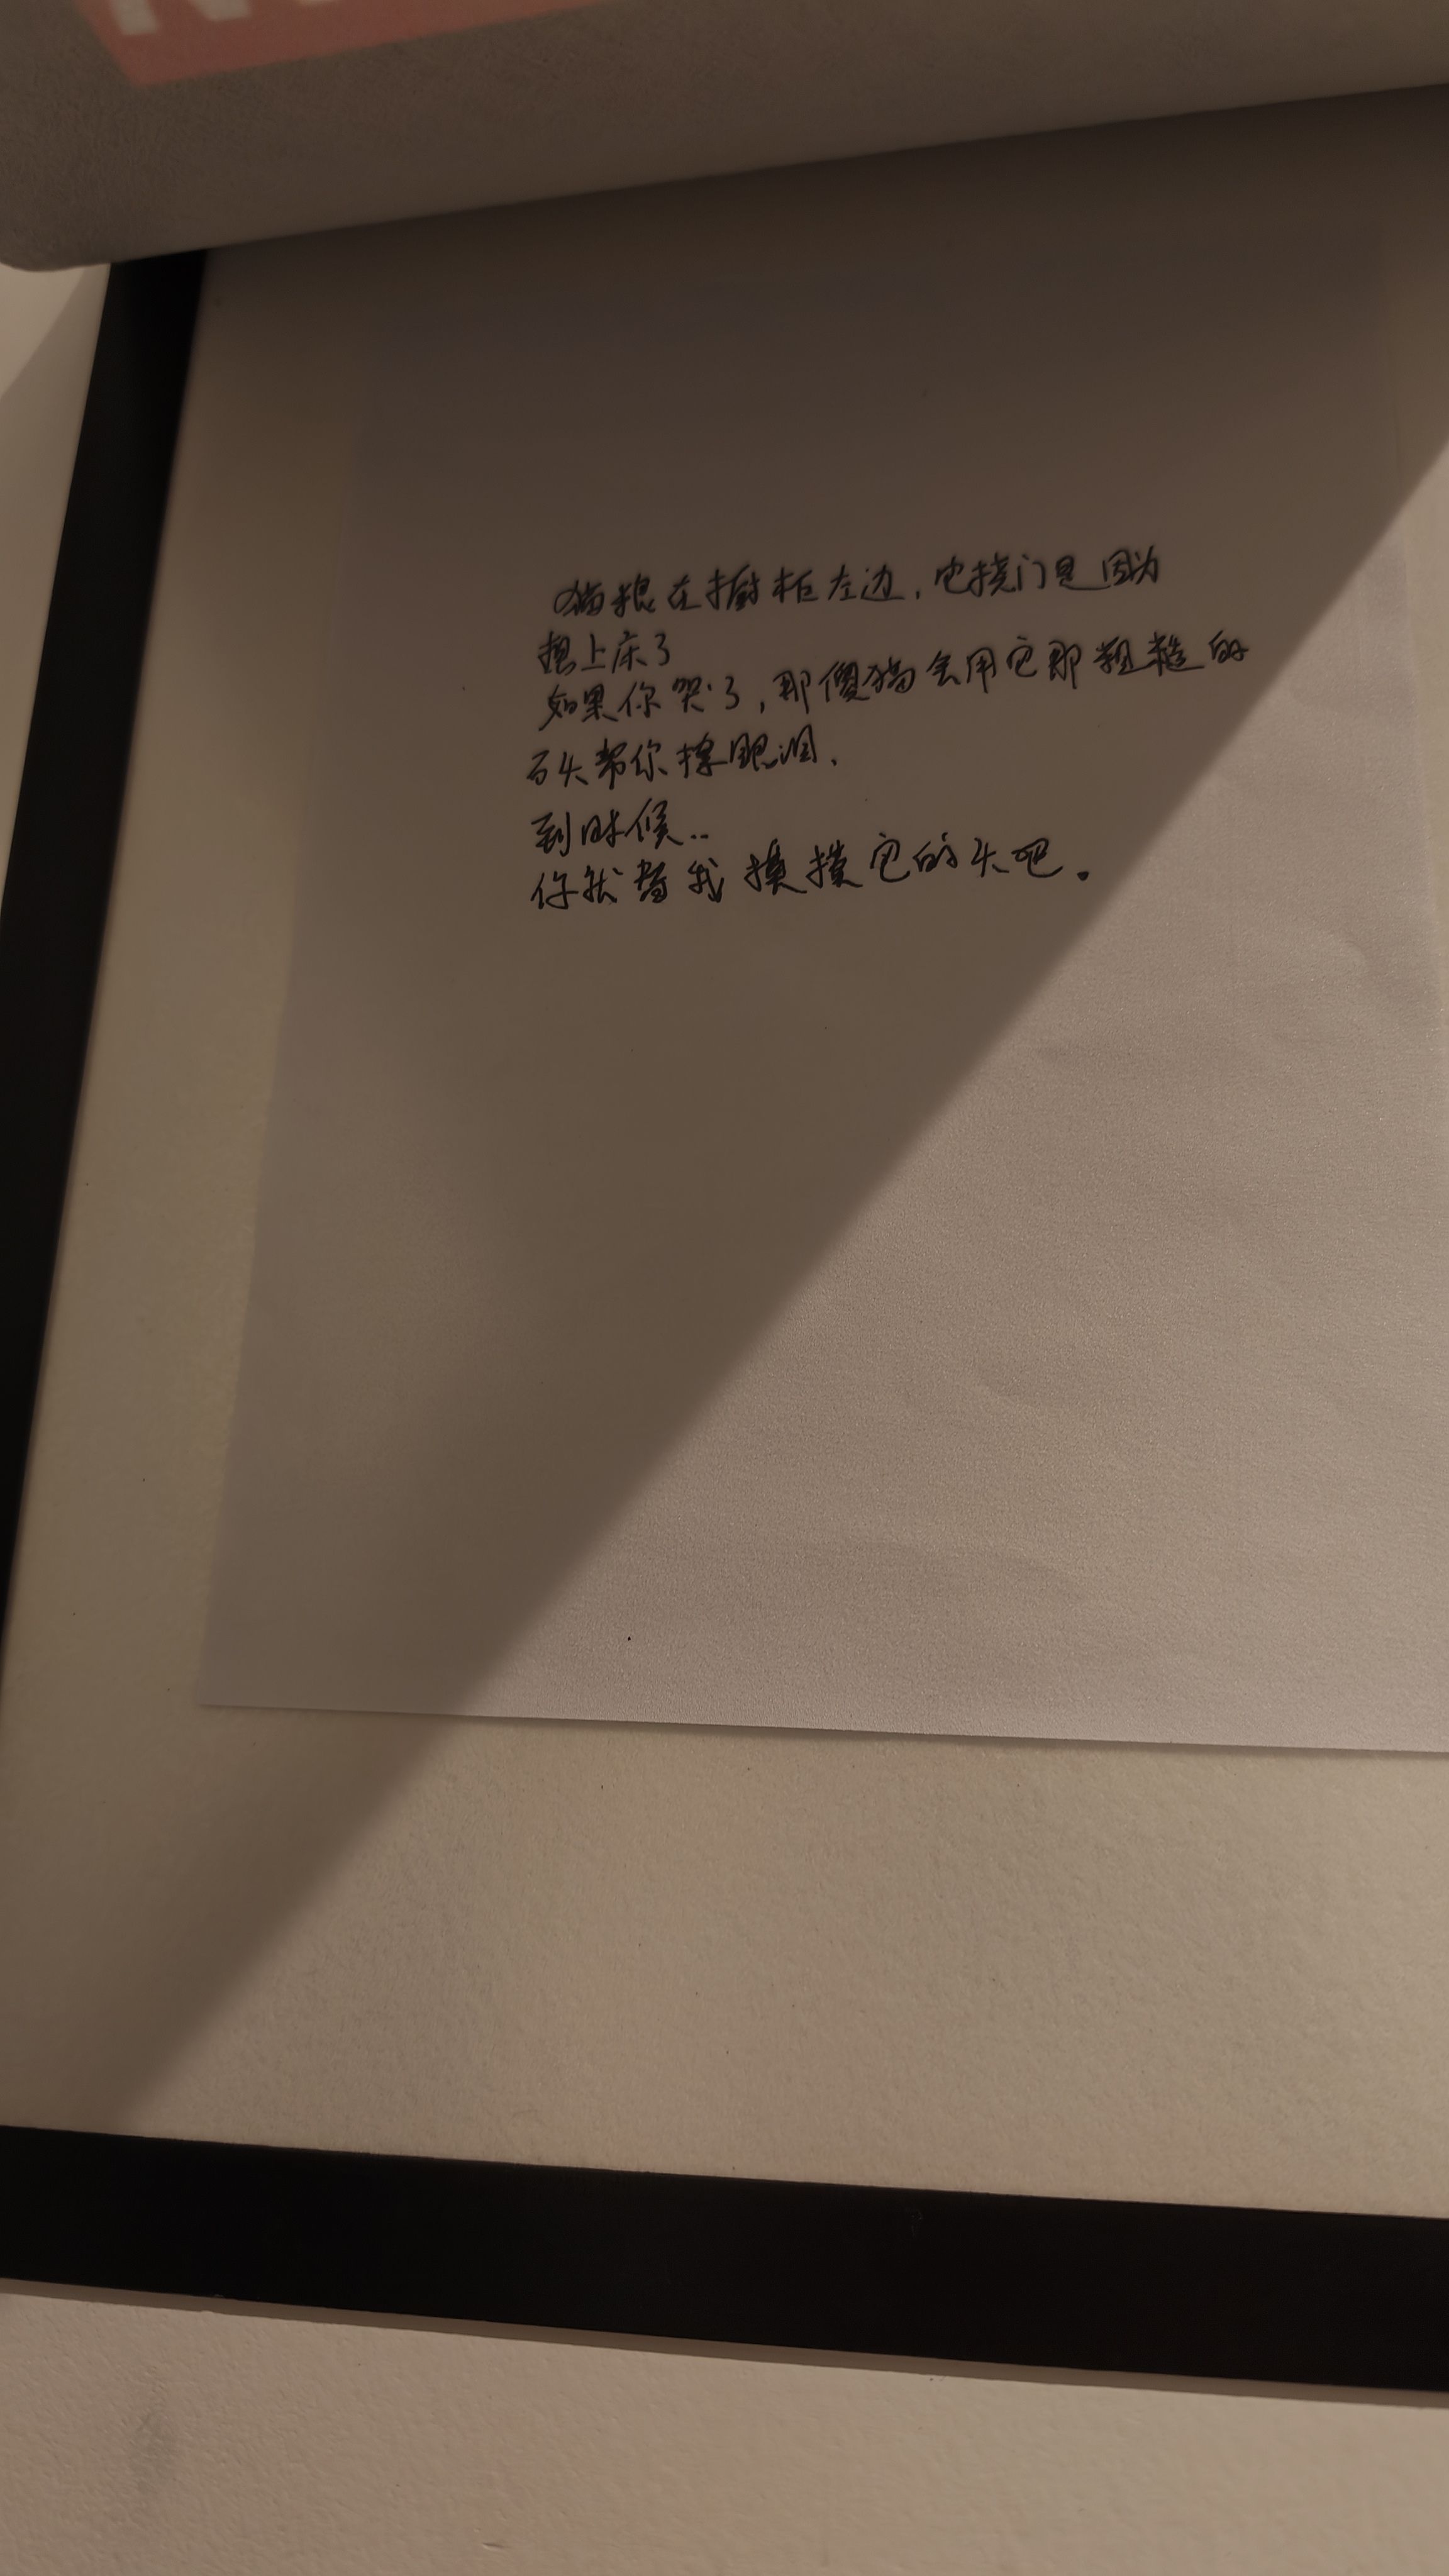 猫粮在橱柜左边，它挠门是因为
想上床了
如果你哭了，那傻猫会用它那粗糙的
舌头帮你擦眼泪，
到时候..
你就替我摸摸它的头吧。